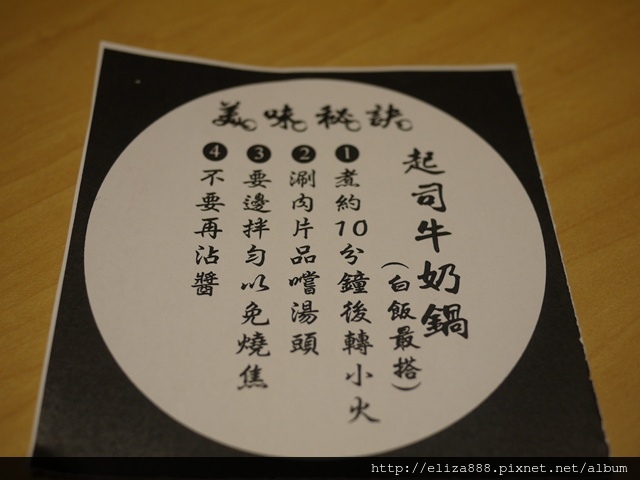 美味秘訣
起司牛奶鍋
(白飯最搭)
1 煮約10分鐘後轉小火
2 涮肉片品嚐湯頭
3 要邊拌勻以免燒焦
4 不要再沾醬
http://eliza888.pixnet.net/album